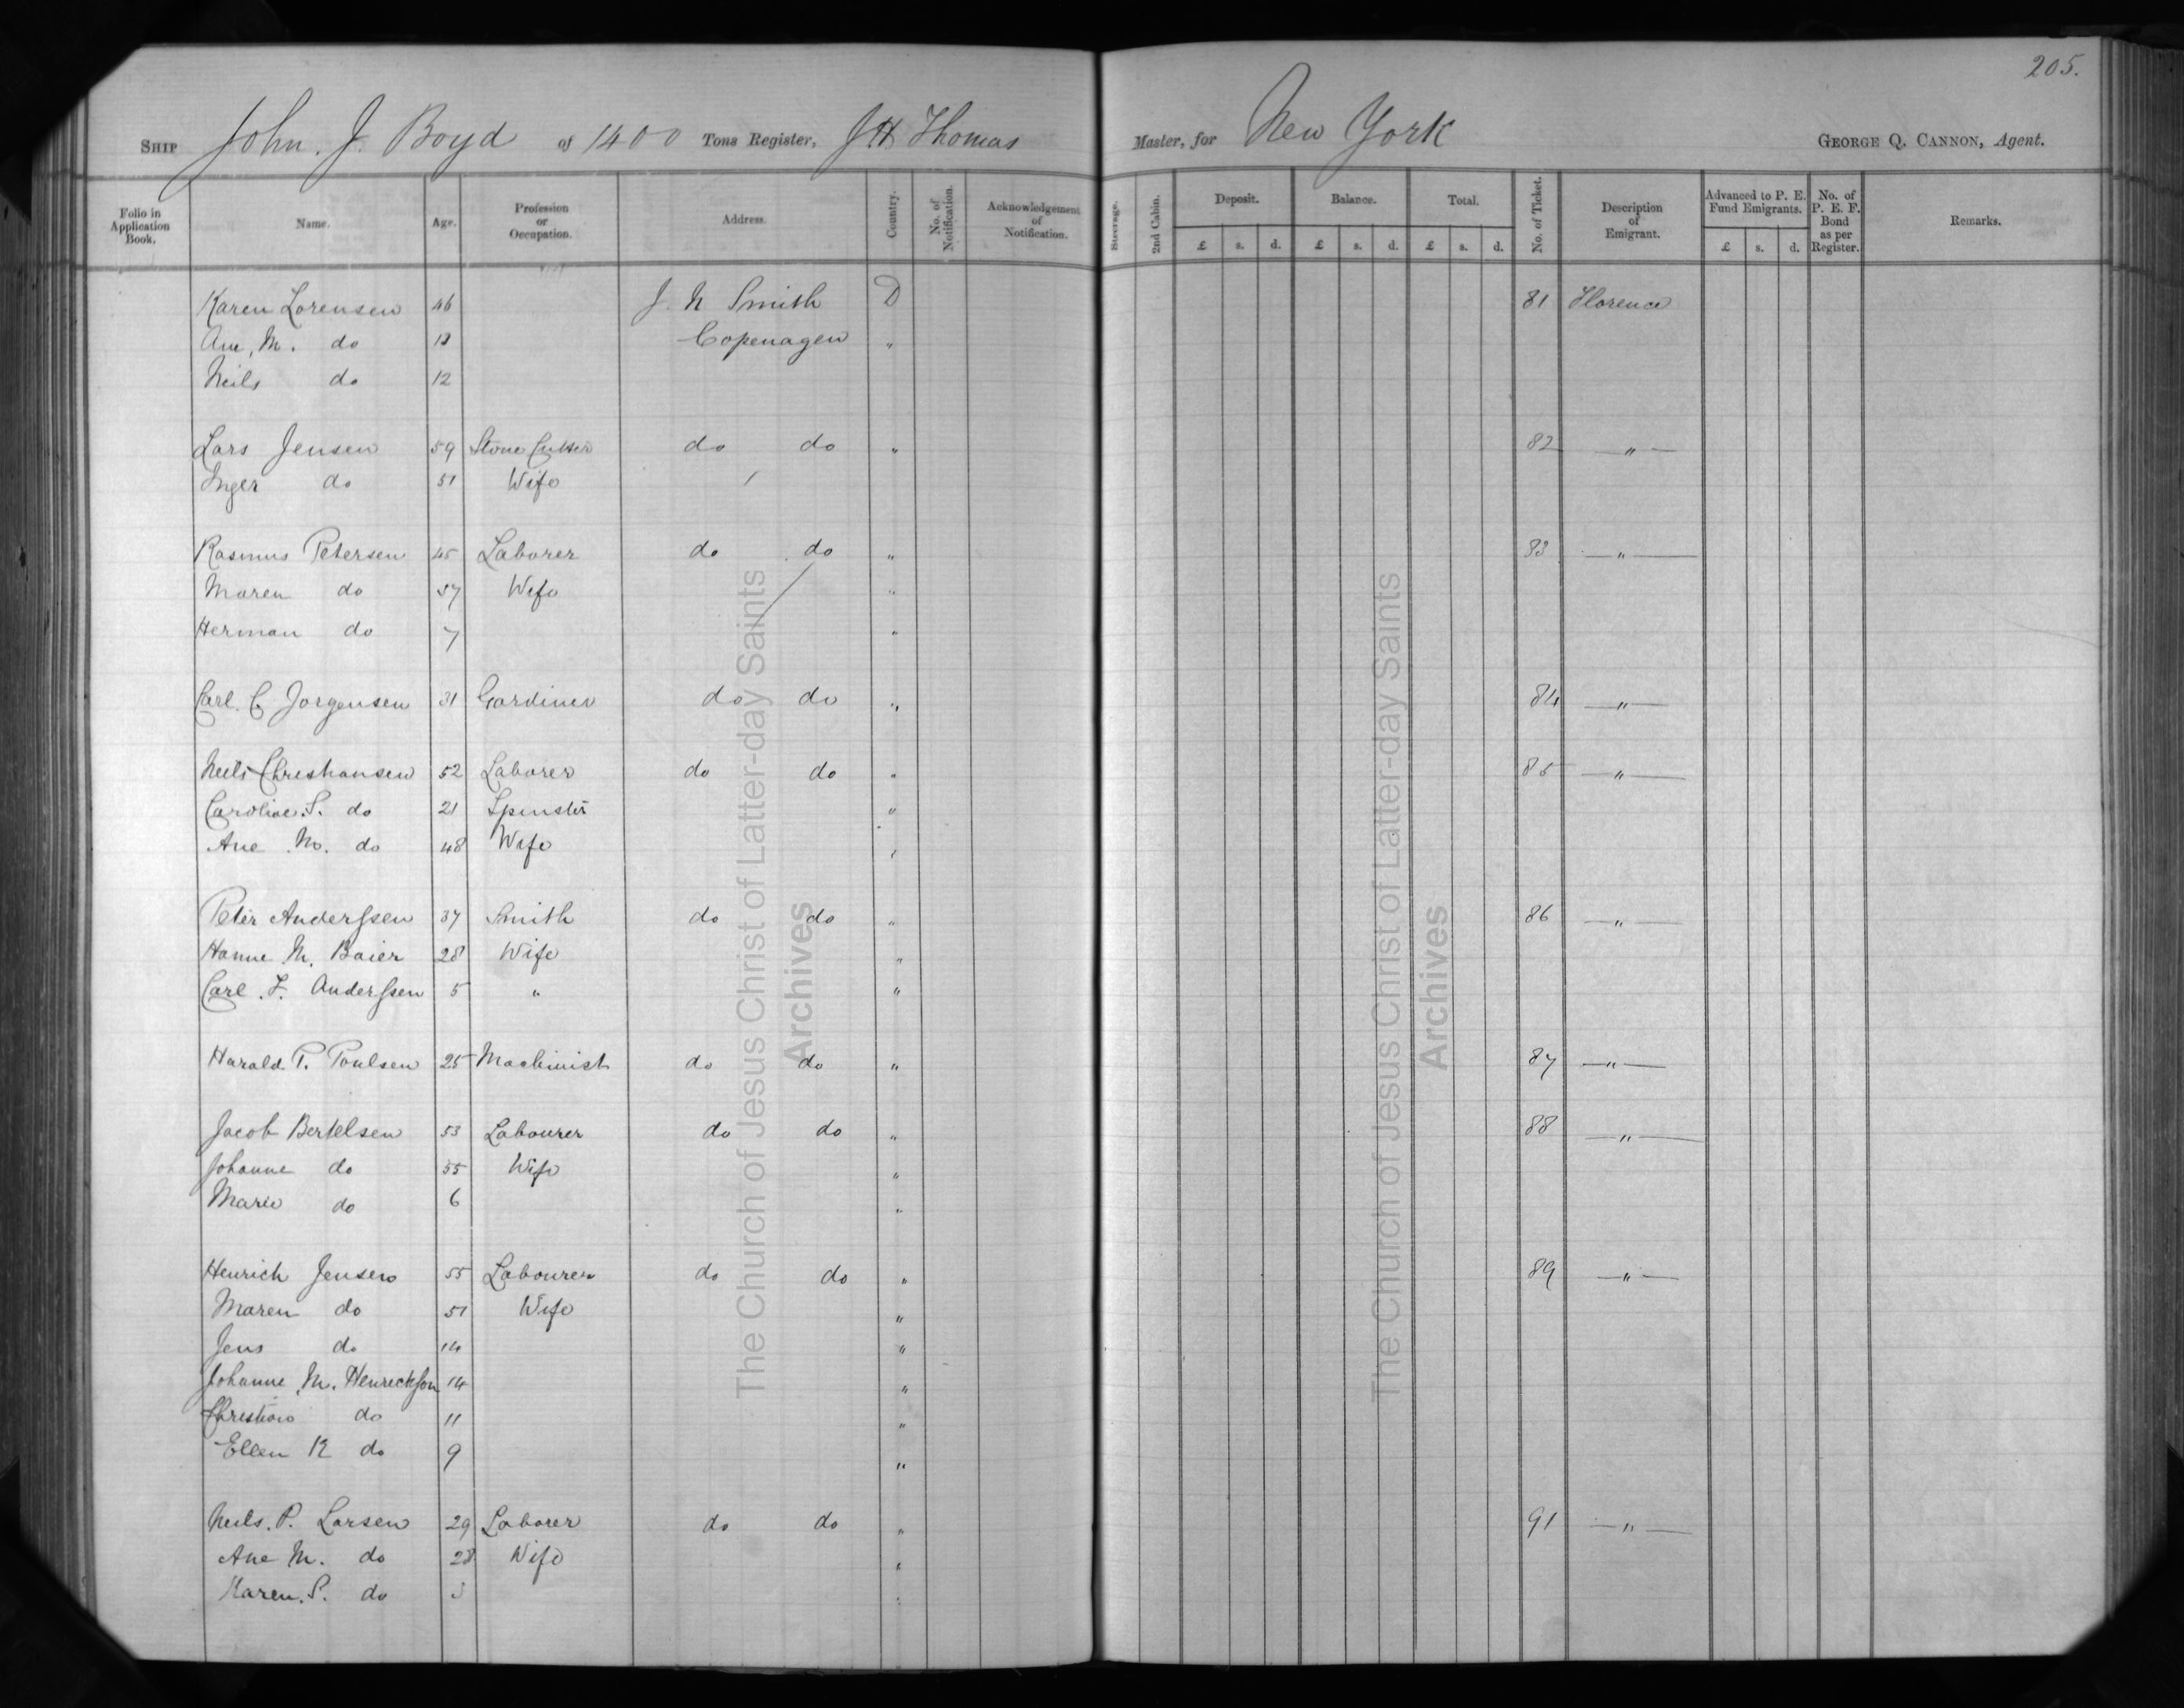 205.
SHIP John. J. Boyd of 1400 Tons Register, J H Thomas Master, for New York GEORGE Q. CANNON, Agent.
Folio in Application Book. Name. Age. Profession or Occupation. Address. Country. No. of Notification. Acknowledgement of Notification. Steerage. 2nd Cabin. Deposit. Balance. Total. No. of Ticket. Description of Emigrant. Advanced to P. E. Fund Emigrants. No. of P. E. F. Bond as per Register. Remarks.
£ s. d. £ s. d. £ s. d. £ s. d.
Karen Lorensen 46 J. N Smith D 81 Florence
Ane, M. do 13 Copenagen "
Neils do 12
Lars Jensen 59 Stone Cutter do do " 82 "
Inger do 51 Wife
Rasmus Petersen 45 Laborer do do " 83 "
Maren do 37 Wife "
Herman do 7 "
Carl. C Jorgensen 31 Gardiner do do " 84 "
Neils Christiansen 52 Laborer do do " 85 "
Caroline. S. do 21 Spinster "
Ane M. do 48 Wife "
Peter Anderssen 37 Smith do do " 86 "
Hanne M. Baier 28 Wife "
Carl. F. Anderssen 5 " "
Harald. P. Poulsen 25 Machinist do do " 87 "
Jacob Bertelsen 53 Labourer do do " 88 "
Johanne do 55 Wife "
Marie do 6 "
Henrich Jensen 55 Labourer do do " 89 "
Maren do 51 Wife "
Jens do 14 "
Johanne M. Henreckson 14 "
Christian do 11 "
Ellen K do 9 "
Neils. P. Larsen 29 Laborer do do " 91 "
Ane M. do 28 Wife "
Karen. S. do 3 "
The Church of Jesus Christ of Latter-day Saints
Archives
The Church of Jesus Christ of Latter-day Saints
Archives